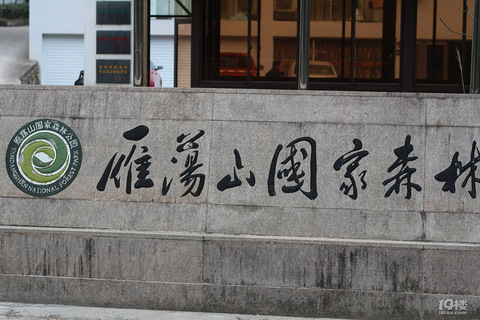 雁蕩山國家森林
雁蕩山国家森林公园
YANDANGSHAN NATIONAL FOREST PARK
10楼
10lou.com